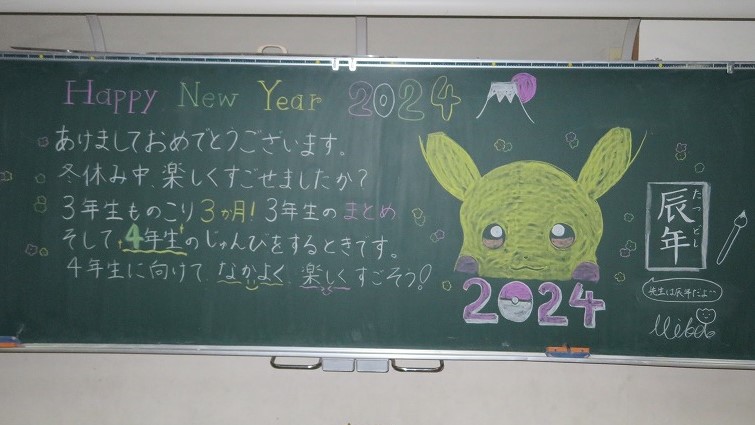 Happy New Year 2024
あけましておめでとうございます。
冬休み中、楽しくすごせましたか?
3年生ものこり3ヵ月! 3年生のまとめ
そして4年生のじゅんびをするときです。
4年生に向けて、なかよく、楽しくすごそう!
2024
たつどし
辰年
先生は辰年だよ…